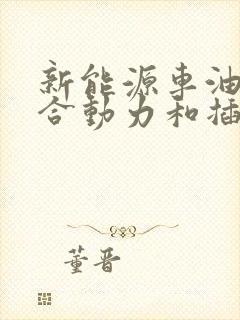 新能源车油
合动力和插
董晋